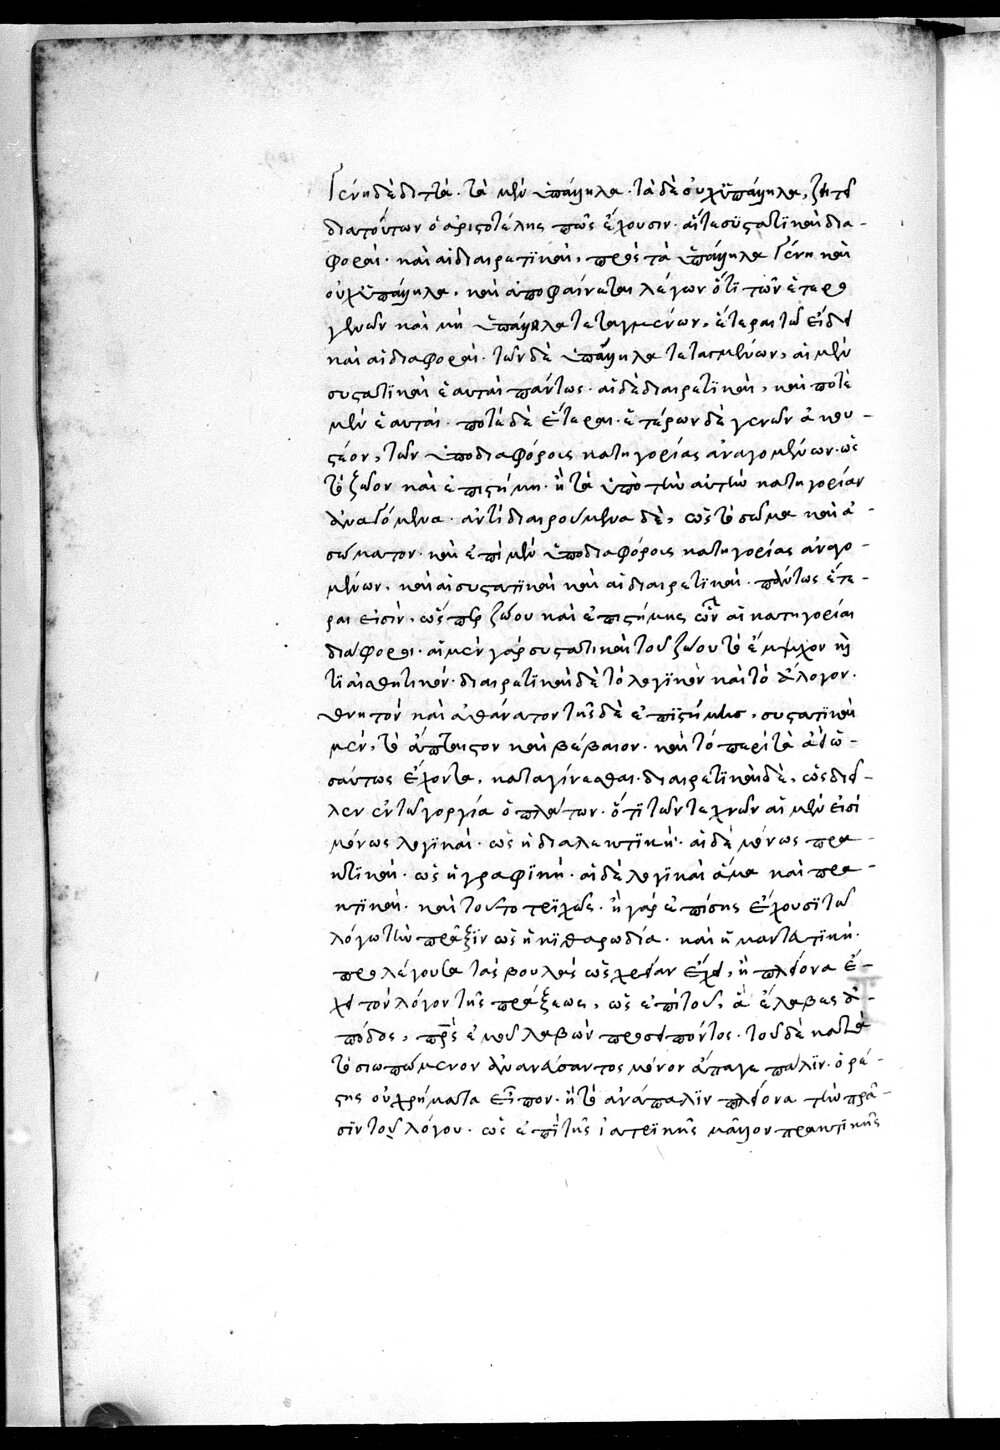 Γένη δὲ διττά· τὰ μὲν ὑπάλληλα· τὰ δὲ οὐχ ὑπάλληλα, ζητεῖ
διατούτων ὁ ἀριστοτέλης πῶς ἔχουσιν· αἵτε συστατικαὶ δια-
φοραὶ· καὶ αἱ διαιρετικαὶ, πρὸς τὰ ὑπάλληλα Γένη καὶ
οὐχ ὑπάλληλα, καὶ ἀποφαίνεται λέγων ὅτι τῶν ἑτερο
γενῶν καὶ μὴ ὑπάλληλα τεταγμένων, ἕτεραι τῶ εἴδει
καὶ αἱ διαφοραὶ· τῶν δὲ ὑπάλληλα τεταγμένων, αἱ μὲν
συστατικαὶ ἑαυταὶ πάντως· αἱ δὲ διαιρετικαὶ, καὶ ποτὲ
μὲν ἑαυταί· ποτὲ δὲ ἕτεραι· ἑτέρων δὲ γενῶν ἀκου-
στέον, τῶν ὑπο διαφόροις κατηγορίας ἀναγομένων· ὡς
τὸ ζῶον καὶ ἐπιστήμη· ἢ τὰ ὑπὸ τὴν αὐτὴν κατηγορίαν
ἀναγόμενα· ἀντιδιαιρούμενα δὲ, ὡς τὸ σῶμα καὶ ἀ-
σώματον· καὶ ἐπὶ μὲν ὑπο διαφόροις κατηγορίας ἀναγο-
μένων, καὶ αἱ συστατικαὶ καὶ αἱ διαιρετικαὶ· πάντως ἕτε-
ραι εἰσὶν· ὥσπερ ζώου καὶ ἐπιστήμης ὧν αἱ κατηγορίαι
διάφοροι· αἱ μὲν γὰρ συστατικαὶ τοῦ ζώου τὸ ἔμψυχον καὶ
τὶ αἰσθητικὸν· διαιρετικαὶ δὲ τὸ λογικὸν καὶ τὸ ἄλογον·
θνητὸν καὶ ἀθάνατον τῆς δὲ ἐπιστήμης, συστατικαὶ
μὲν, τὸ ἄπταιστον καὶ βέβαιον· καὶ τὸ περὶ τὰ ἀεὶ ὡ-
σαύτως ἔχοντα, καταγίνεσθαι· διαιρετικαὶ δὲ, ὡς διεῖ-
λεν ἐν τῶ γοργία ὁ πλάτων· ὅτι τῶν τεχνῶν αἱ μὲν εἰσὶ
μόνως λογικαὶ· ὡς ἡ διαλεκτικὴ· αἱ δὲ μόνως πρα-
κτικαὶ· ὡς ἡ γραφικὴ· αἱ δὲ λογικαὶ ἅμα καὶ πρα-
κτικαὶ· καὶ τοῦτο τριχῶς· ἢ γὰρ ἐπίσης ἔχουσι τῶ
λόγω τὴν πρᾶξιν ὡς ἡ κιθαρωδία· καὶ ἡ μαντατικὴ·
προλέγουσα τὰς βουλὰς ὡς χρείαν ἔχει, ἢ πλείονα ἔ-
χει τὸν λόγον τῆς πράξεως, ὡς ἐπὶ τοῦ, ἃ ἔλαβες ἀ-
πόδος, πρὸς ἐμοῦ λαβὼν προσειπόντος· τοῦ δὲ κατὰ
τὸ σιωπώμενον μόνον ἄπαγε πάλιν· ὀρέ-
στης οὐ χρήματα εἶπον· ἢ τὸ ἀνάπαλιν πλείονα τὴν πρᾶ-
σιν τοῦ λόγου· ὡς ἐπὶ τῆς ἰατρικῆς μᾶλλον πρακτικῆς